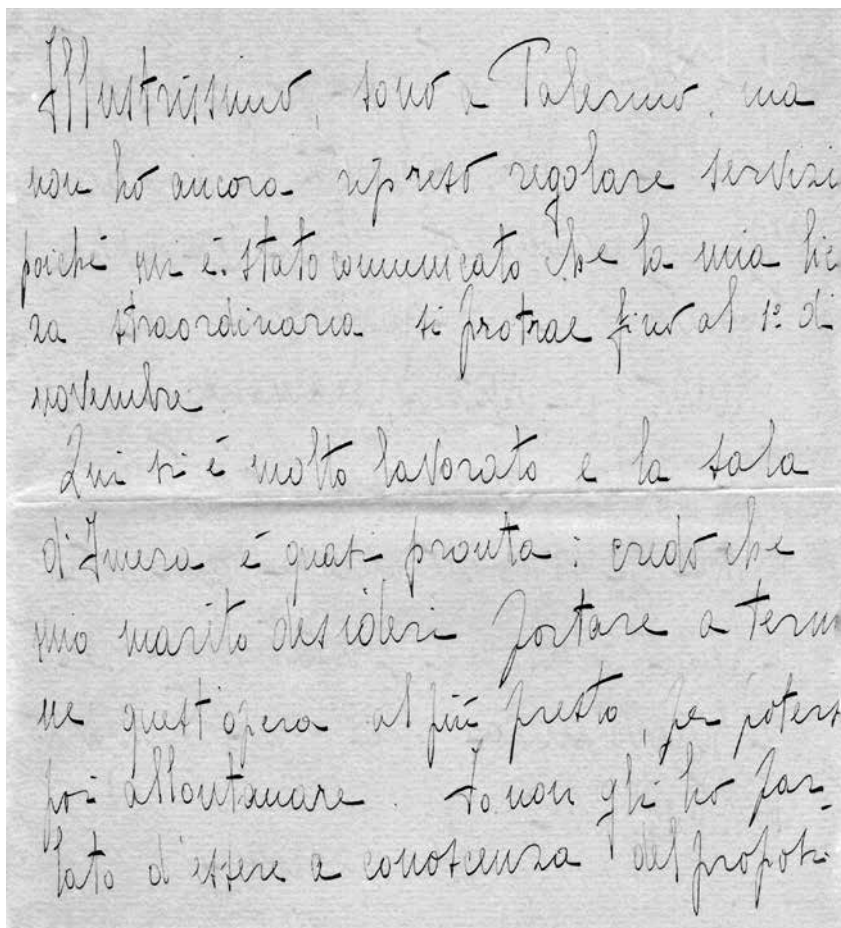 Illustrissimo, sono a Palermo, ma
non ho ancora ripreso regolare servizi
poiché mi è stato comunicato che la mia lic
za straordinaria si protrae fino al 1º di
novembre.
Qui si è molto lavorato e la sala
d'Imera è quasi pronta: credo che
mio marito desideri portare a termi
ne quest'opera al più presto, per poters
poi allontanare. Io non gli ho par-
lato d'essere a conoscenza del proposi